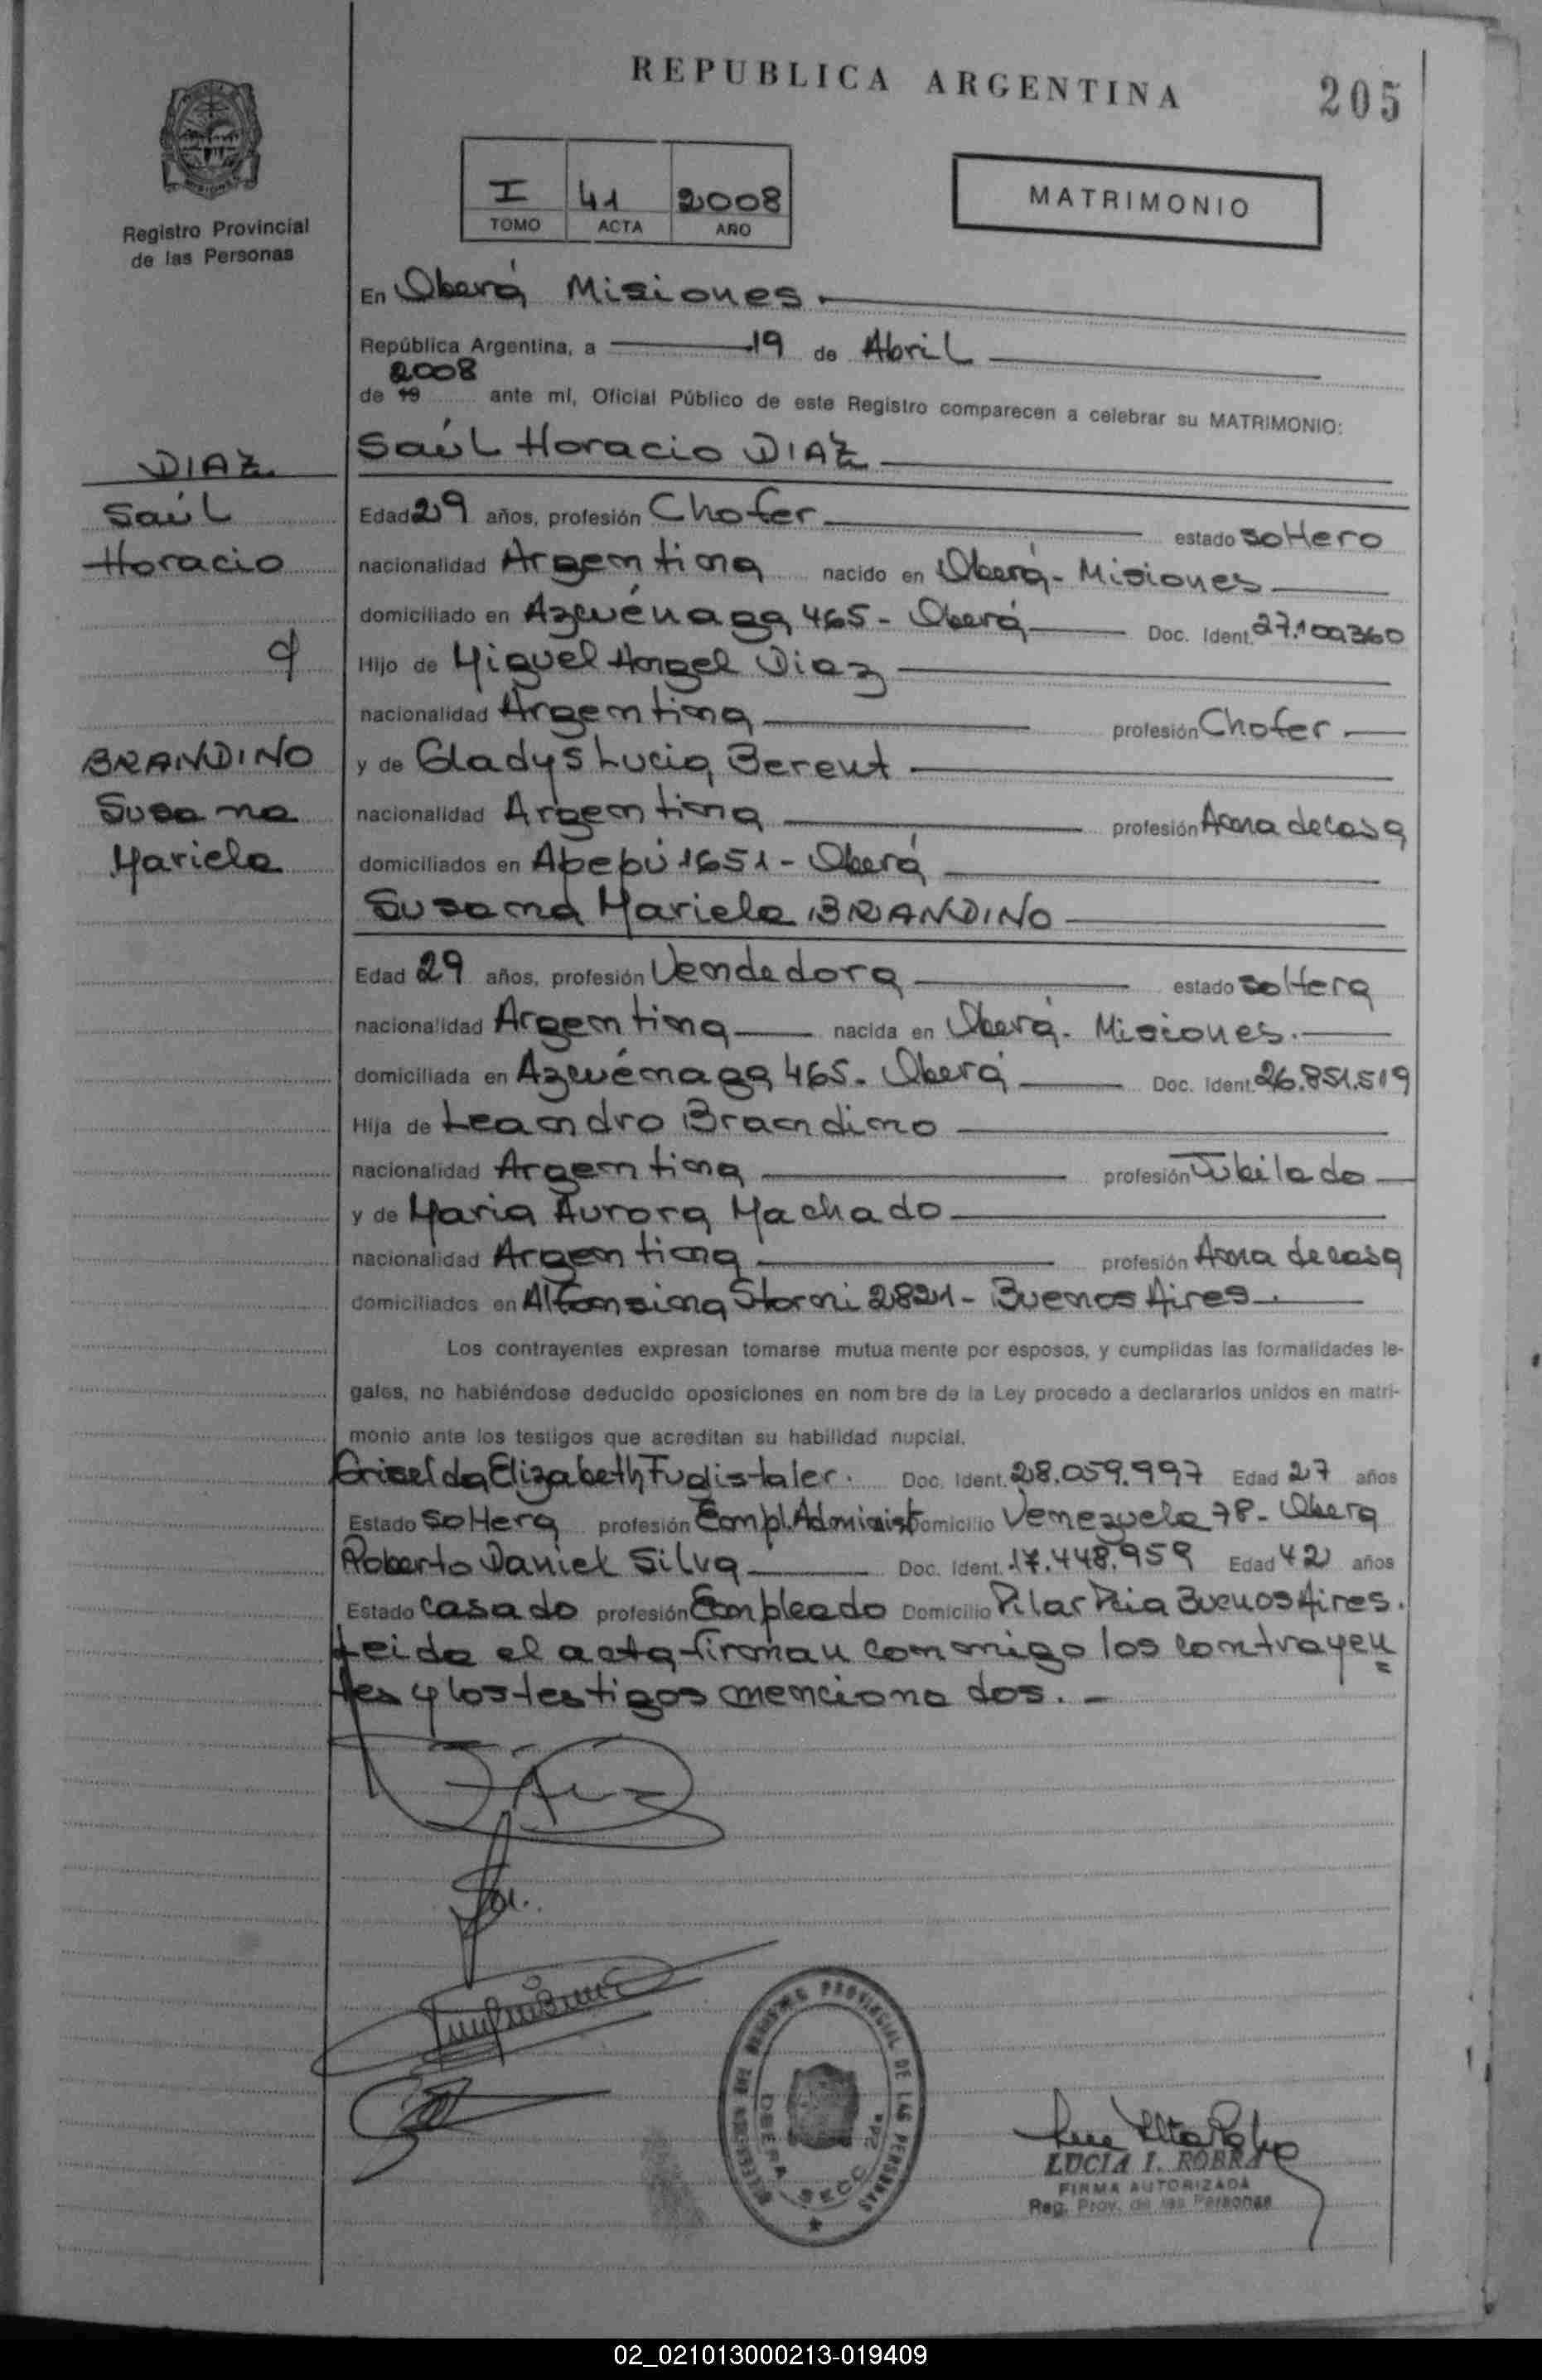 REPUBLICA ARGENTINA
205
Registro Provincial
de las Personas
I 41 2008
TOMO ACTA AÑO
MATRIMONIO
En Oberá Misiones.
República Argentina, a 19 de Abril
2008
de 19 ante mi, Oficial Público de este Registro comparecen a celebrar su MATRIMONIO:
DIAZ
Saúl
Horacio
c/
BRANDINO
Susana
Mariela
Saúl Horacio DIAZ
Edad 29 años, profesión Chofer estado soltero
nacionalidad Argentina nacido en Oberá - Misiones
domiciliado en Azcuénaga 465 - Oberá Doc. Ident. 27.100360
Hijo de Miguel Angel Diaz
nacionalidad Argentina profesión Chofer.
y de Gladys Lucia Berent
nacionalidad Argentina profesión Ama de casa
domiciliados en Apepú 1651 - Oberá
Susana Mariela BRANDINO
Edad 29 años, profesión Vendedora estado soltera
nacionalidad Argentina nacida en Oberá - Misiones.
domiciliada en Azcuénaga 465 - Oberá Doc. Ident. 26.851.519
Hija de Leandro Brandino
nacionalidad Argentina profesión Jubilado
y de Maria Aurora Machado
nacionalidad Argentina profesión Ama de casa
domiciliados en Alfonsina Storni 2821 - Buenos Aires.
Los contrayentes expresan tomarse mutua mente por esposos, y cumplidas las formalidades le-
gales, no habiéndose deducido oposiciones en nom bre de la Ley procedo a declararlos unidos en matri-
monio ante los testigos que acreditan su habilidad nupcial.
Griselda Elizabeth Fudistaler. Doc. Ident. 28.059.997 Edad 27 años
Estado soltera profesión Empl. Administ Domicilio Venezuela 78 - Obera
Roberto Daniel Silva Doc. Ident. 17.448.959 Edad 42 años
Estado casado profesión Empleado Domicilio Pilar Pcia Buenos Aires.
Leida el acta firman conmigo los contrayen
tes y los testigos mencionados. -
REGISTRO PROVINCIAL DE LAS PERSONAS
OBERA SECC. 2da
LUCIA I. ROBRA
FIRMA AUTORIZADA
Reg. Prov. de las Personas
02_021013000213-019409